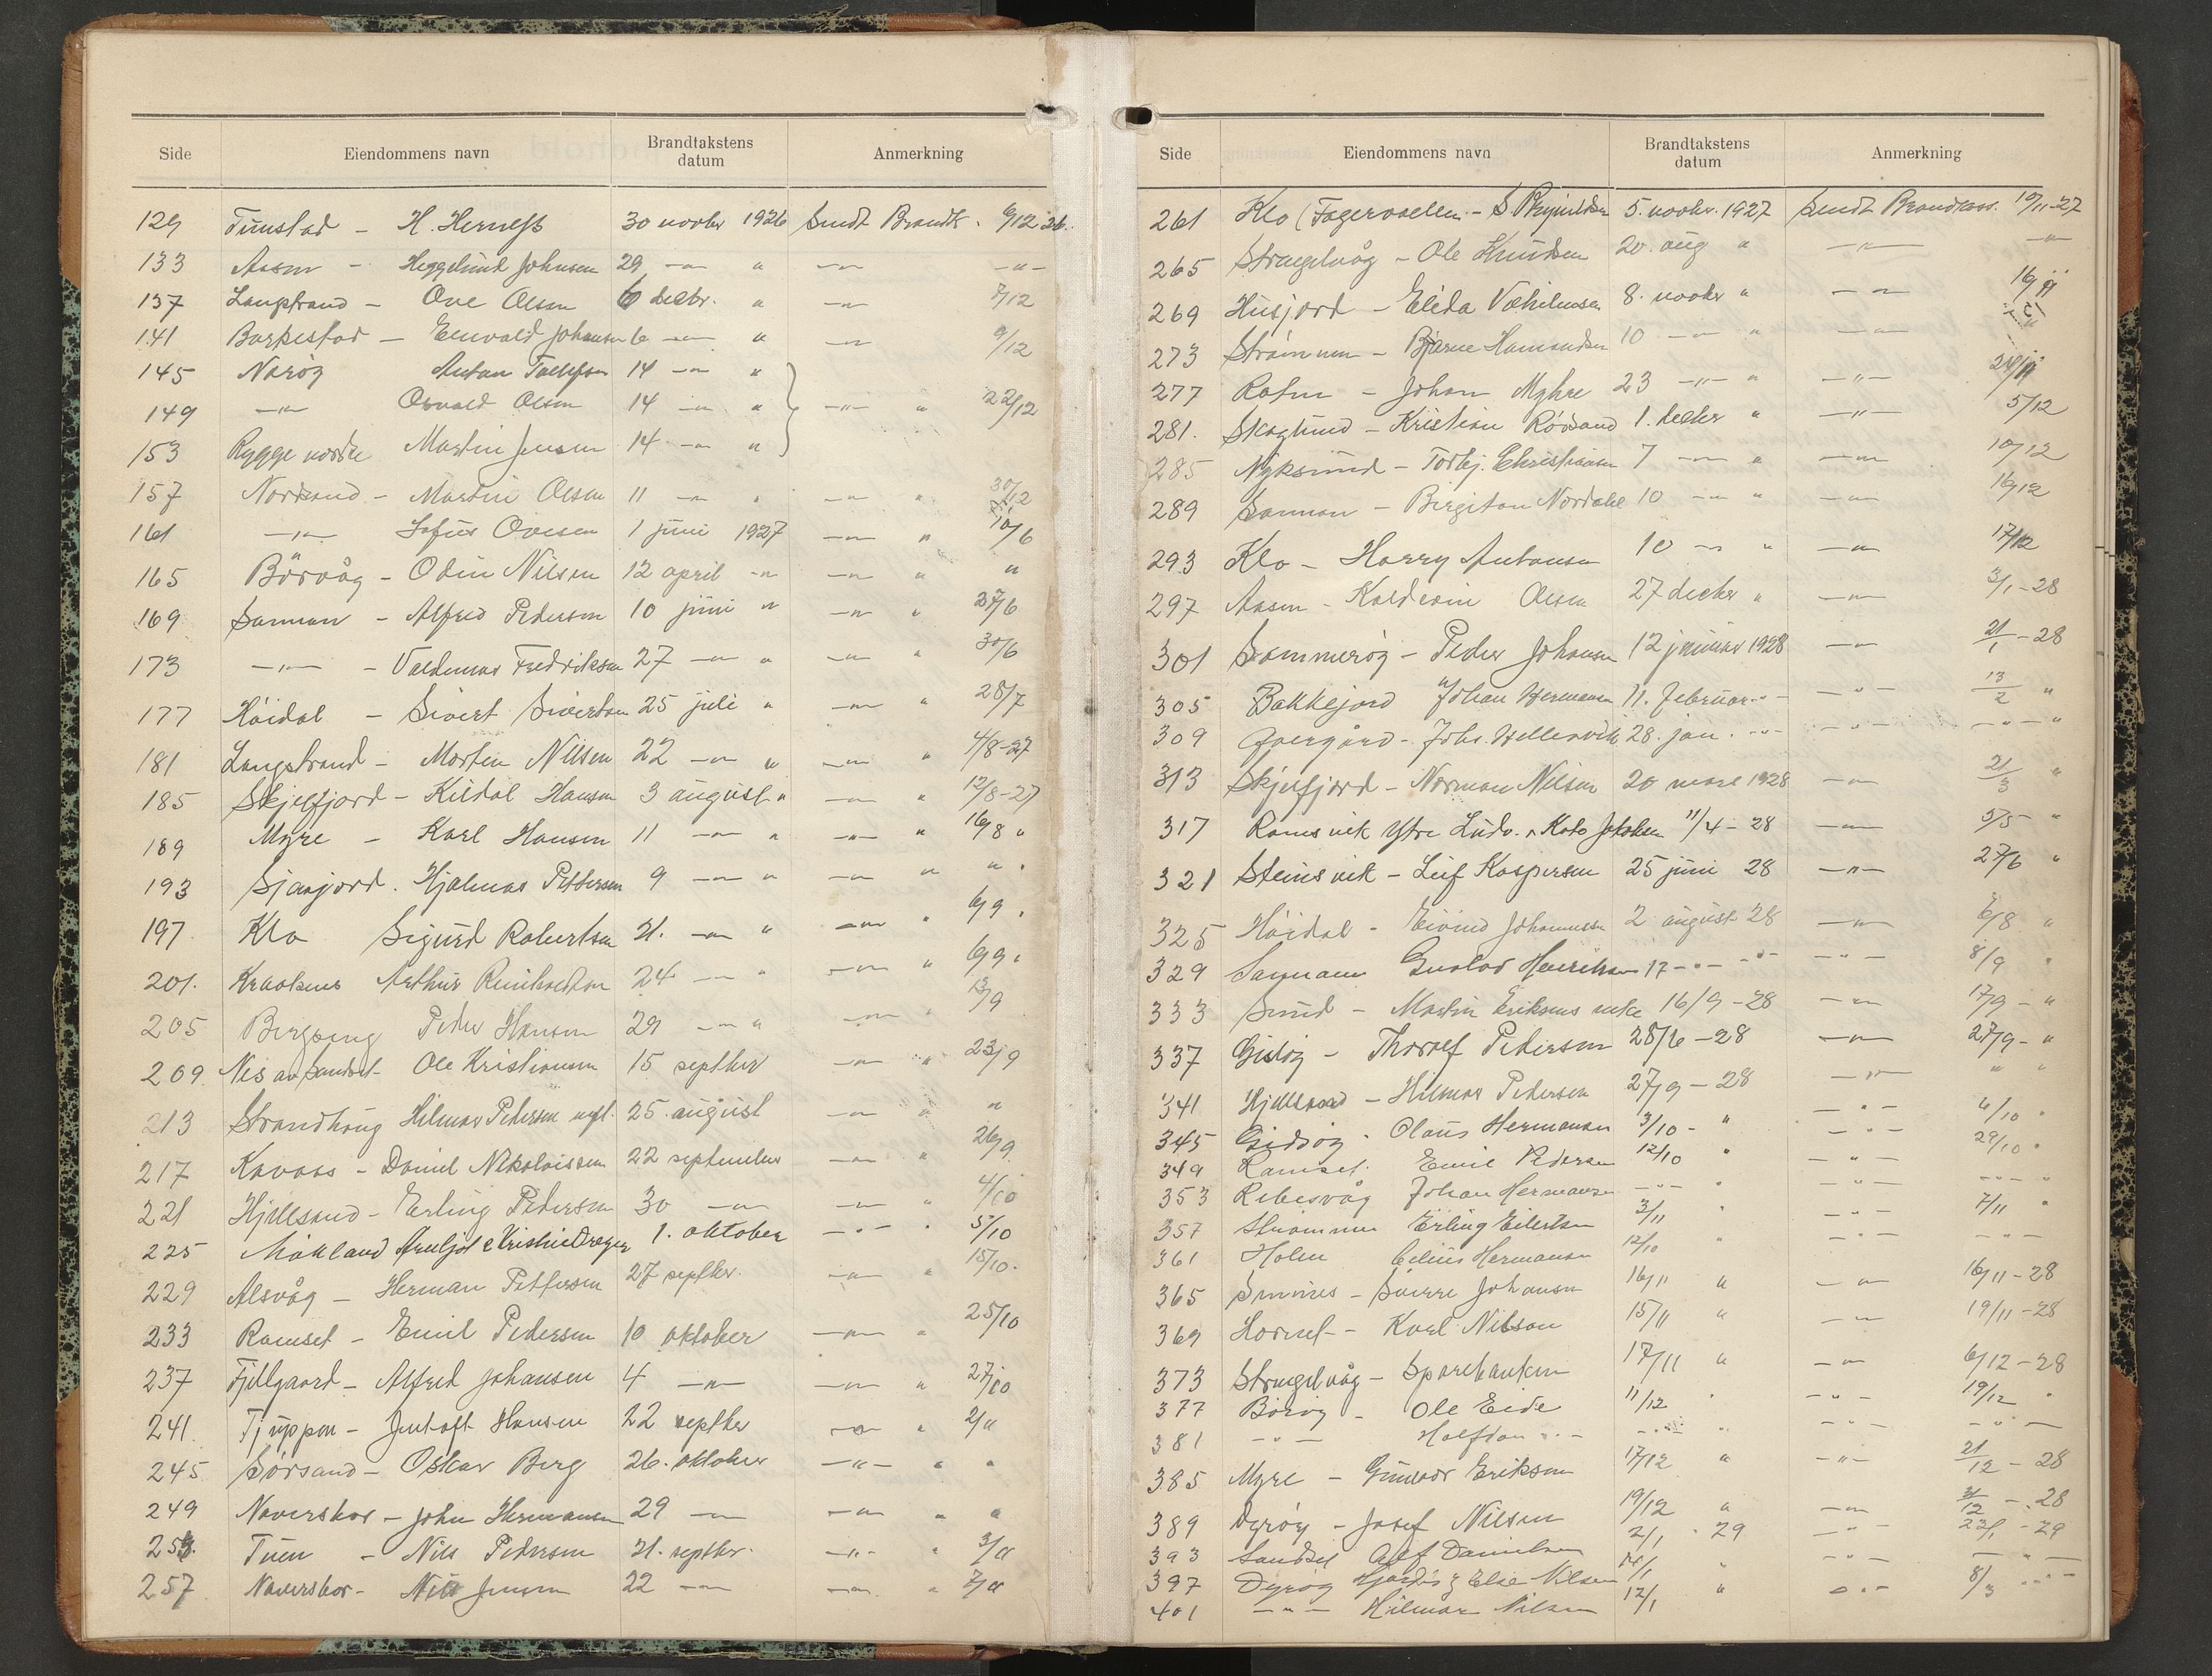 Side Eiendommens navn Brandtakstens datum Anmerkning
129 Tunstad - H. Herness 30 novbr 1926 Sendt Brandk. 6/12 26.
133 Aasen - Heggelund Johnsen 29 -"- " -"- -"-
137 Langstrand - Ove Olsen 6 decbr. " -"- 7/12
141 Barkestad - Edvald Johansen 6 -"- " -"- 9/12
145 Norøy Anton 14 -"- "
149 -"- Osvald Olsen 14 -"- " -"- " 22/12
153 Rygge nordre Martin Jensen 14 -"- "
157 Nordsand - Martin Olsen 11 -"- " -"- " 30/12
161 -"- Sofus Ovesen 1 juni 1927 -"- " 10/6
165 Börvåg - Odin Nilsen 12 april -"- -"- " "
169 Sannan - Alfred Pedersen 10 juni " -"- " 27/6
173 -"- - Valdemar Fredriksen 27 -"- " -"- " 30/6
177 Høidal - Sivert Sivertsen 25 juli " -"- " 28/7
181 Langstrand - Morten Nilsen 22 -"- " -"- " 4/8-27
185 Skjelfjord - Kildal Hansen 3 august " -"- " 12/8-27
189 Myre - Karl Hansen 11 -"- " -"- " 16/8 "
193 Sjaajord. Hjalmar Pettersen 9 -"- " -"- " " "
197 Klo Sigurd Robertsen 31. -"- " -"- " 6/9 "
201. Arthur 24 -"- " -"- " 6/9 "
205 Bergseng Peder Hansen 29 -"- " -"- 13/9
209. Nes av Sandset Ole Kristiansen 15 septber -"- " 23/9
213 Strandhaug Hilmar Pedersen 25. august -"- " "
217 Kavaas - Daniel Nikolaisen 22 september -"- " 26/9
221 Hjellsand - Erling Pedersen 30 -"- -"- " 4/10
225 Måkland Arnljot & Kristine Dreyer 1. oktober -"- " 5/10
229 Alsvåg - Herman Pettersen 27 septber. -"- " 15/10.
233 Ramset - Emil Pedersen 10 oktober -"- " 25/10
237 Fjellgaard - Alfred Johansen 4 -"- -"- " 27/10
241. Tjuppen - Jentoft Hansen 22 septber -"- " 2/11
245 Sörsand - Oskar Berg 26. oktober -"- " "
249 Naverskor - John Hermansen 29 -"- -"- " "
253. Tuen - Nils Pedersen 21. septbr. -"- " 3/11
257 Naverskor - Nils Jensen 22 -"- -"- " 7/11
Side Eiendommens navn Brandtakstens datum Anmerkning
261 Klo (Fagervollen - S. 5. novbr. 1927 Sendt Brandkass. 10/11-27
265 Strengelvåg - Ole Knudsen 20. aug " -"- -"-
269 Husjord - Elida Vilhelmsen 8. novbr " -"- 16/11
273 Strømmen - Bjarne Hamandsen 10 -"- " -"- "
277 Rafin - Johan Myhre 23 -"- " -"- 24/11
281. Skoglund - Kristian Rødsand 1. decber " -"- 5/12
285 Nyksund - Torbj. Christiansen 7 -"- " -"- 10/12
289 Sannan - Birgitan Nordahl 10 -"- " -"- 16/12
293 Klo - Harry Antonsen 10 -"- " -"- 17/12
297 Aasen - Kaldvin Olsen 27 decber " -"- 3/1-28
301 Sommerøy - Peder Johansen 12 januar 1928 -"- 21/1-28
305 Bakkejord Johan Hermansen 11. februar -"- -"- 13/2 "
309 Øvergård - Johs. Hellervik 28. jan. -"- -"- -"- "
313 Skjelfjord - Norman Nilsen 20 mars 1928 -"- 21/3 "
317 Ramsvik Ytre Ludv. & Kato Jakobsen 11/4-28 -"- 5/5 "
321 Steinsvik - Leif Kaspersen 25 juni 28 -"- 27/6 "
325 Høidal - Eivind Johannessen 2 august 28 -"- 6/8 "
329 Sannan Gustav Henriksen 17 -"- -"- -"- 8/9 "
333 Smines - Martin Eriksens enke 16/9-28 -"- 17/9- "
337 Gisløy - Thoralf Pedersen 25/6-28 -"- 27/9- "
341 Hjellsand - Hilmar Pedersen 27/9-28 -"- " "
345 Gisløy - Olaus Hermansen 3/10- " -"- 6/10 "
349 Ramset. Emil Pedersen 12/10 " -"- 29/10 "
353 Ribesvåg Johan Hermansen -"- " -"- -"- "
357 Strømmen Erling Eilertsen 3/11 " -"- 7/11 "
361 Holm Celius Hermansen 12/10 " -"- -"-
365 Smines - Sverre Johansen 16/11 " -"- 16/11-28
369 Hornet - Karl Nilsson 15/11 " -"- 19/11-28
373 Strengelvåg - Sparebanken 17/11 " -"- 6/12-28
377 Børøy - Ole Eide 11/12 " -"- 19/12 "
381 -"- Halfdan -"- -"- " -"- -"-
385 Myre - Gunvor Eriksen 17/12 " -"- 21/12-28
389 Dyrøy - Josef Nilsen 19/12 " -"- 31/12-28
393 Sandset Alf Danielsen 2/1 - 29 -"- 23/1-29
397 Dyrøy Hjørdis & Else Nilsen 11/1 " -"- -"-
401 -"- Hilmar Nilsen 12/1 " -"- 8/3 -"-